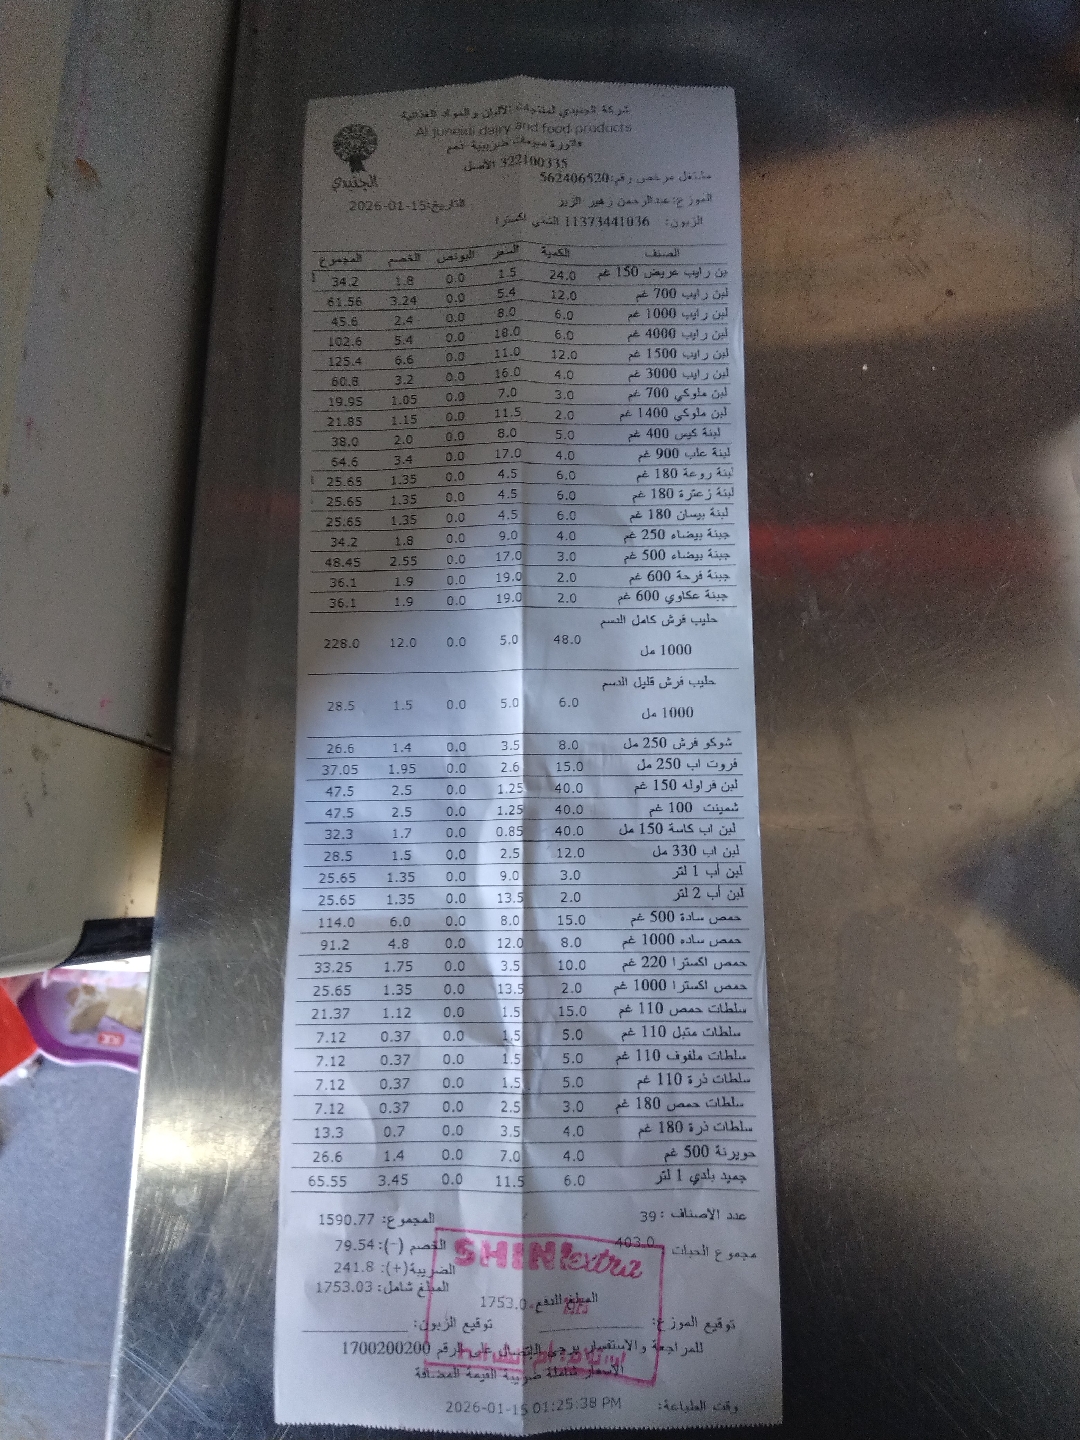 شركة الجنيدي لمنتجات الألبان والمواد الغذائية
Al juneidi dairy and food products
فاتورة مبيعات ضريبية نعم
322100335 الأصل
الجنيدي
مشتغل مرخص رقم:562406520
الموزع: عبدالرحمن زهير الزير التاريخ:15-01-2026
الزبون: 11373441036 الشني اكسترا
الصنف الكمية السعر البونص الخصم المجموع
بن رايب عريض 150 غم 24.0 1.5 0.0 1.8 34.2
لبن رايب 700 غم 12.0 5.4 0.0 3.24 61.56
لبن رايب 1000 غم 6.0 8.0 0.0 2.4 45.6
لبن رايب 4000 غم 6.0 18.0 0.0 5.4 102.6
لبن رايب 1500 غم 12.0 11.0 0.0 6.6 125.4
لبن رايب 3000 غم 4.0 16.0 0.0 3.2 60.8
لبن ملوكي 700 غم 3.0 7.0 0.0 1.05 19.95
لبن ملوكي 1400 غم 2.0 11.5 0.0 1.15 21.85
لبنة كيس 400 غم 5.0 8.0 0.0 2.0 38.0
لبنة علب 900 غم 4.0 17.0 0.0 3.4 64.6
لبنة روعة 180 غم 6.0 4.5 0.0 1.35 25.65
لبنة زعترة 180 غم 6.0 4.5 0.0 1.35 25.65
لبنة بيسان 180 غم 6.0 4.5 0.0 1.35 25.65
جبنة بيضاء 250 غم 4.0 9.0 0.0 1.8 34.2
جبنة بيضاء 500 غم 3.0 17.0 0.0 2.55 48.45
جبنة فرحة 600 غم 2.0 19.0 0.0 1.9 36.1
جبنة عكاوي 600 غم 2.0 19.0 0.0 1.9 36.1
حليب فرش كامل الدسم
1000 مل 48.0 5.0 0.0 12.0 228.0
حليب فرش قليل الدسم
1000 مل 6.0 5.0 0.0 1.5 28.5
شوكو فرش 250 مل 8.0 3.5 0.0 1.4 26.6
فروت اب 250 مل 15.0 2.6 0.0 1.95 37.05
لبن فراوله 150 غم 40.0 1.25 0.0 2.5 47.5
شمينت 100 غم 40.0 1.25 0.0 2.5 47.5
لبن اب كاسة 150 مل 40.0 0.85 0.0 1.7 32.3
لبن اب 330 مل 12.0 2.5 0.0 1.5 28.5
لبن أب 1 لتر 3.0 9.0 0.0 1.35 25.65
لبن أب 2 لتر 2.0 13.5 0.0 1.35 25.65
حمص سادة 500 غم 15.0 8.0 0.0 6.0 114.0
حمص ساده 1000 غم 8.0 12.0 0.0 4.8 91.2
حمص اكسترا 220 غم 10.0 3.5 0.0 1.75 33.25
حمص اكسترا 1000 غم 2.0 13.5 0.0 1.35 25.65
سلطات حمص 110 غم 15.0 1.5 0.0 1.12 21.37
سلطات متبل 110 غم 5.0 1.5 0.0 0.37 7.12
سلطات ملفوف 110 غم 5.0 1.5 0.0 0.37 7.12
سلطات ذرة 110 غم 5.0 1.5 0.0 0.37 7.12
سلطات حمص 180 غم 3.0 2.5 0.0 0.37 7.12
سلطات ذرة 180 غم 4.0 3.5 0.0 0.7 13.3
حويرنة 500 غم 4.0 7.0 0.0 1.4 26.6
جميد بلدي 1 لتر 6.0 11.5 0.0 3.45 65.55
عدد الاصناف : 39 المجموع: 1590.77
مجموع الحبات 403.0 الخصم (-): 79.54
SHINI extra
الضريبة(+): 241.8
المبلغ شامل: 1753.03
المبلغ المدفوع: 1753.0
توقيع الموزع: توقيع الزبون:
للمراجعة والاستفسار يرجى الاتصال على الرقم 1700200200
الأسعار شاملة ضريبة القيمة المضافة
وقت الطباعة: 2026-01-15 01:25:38 PM